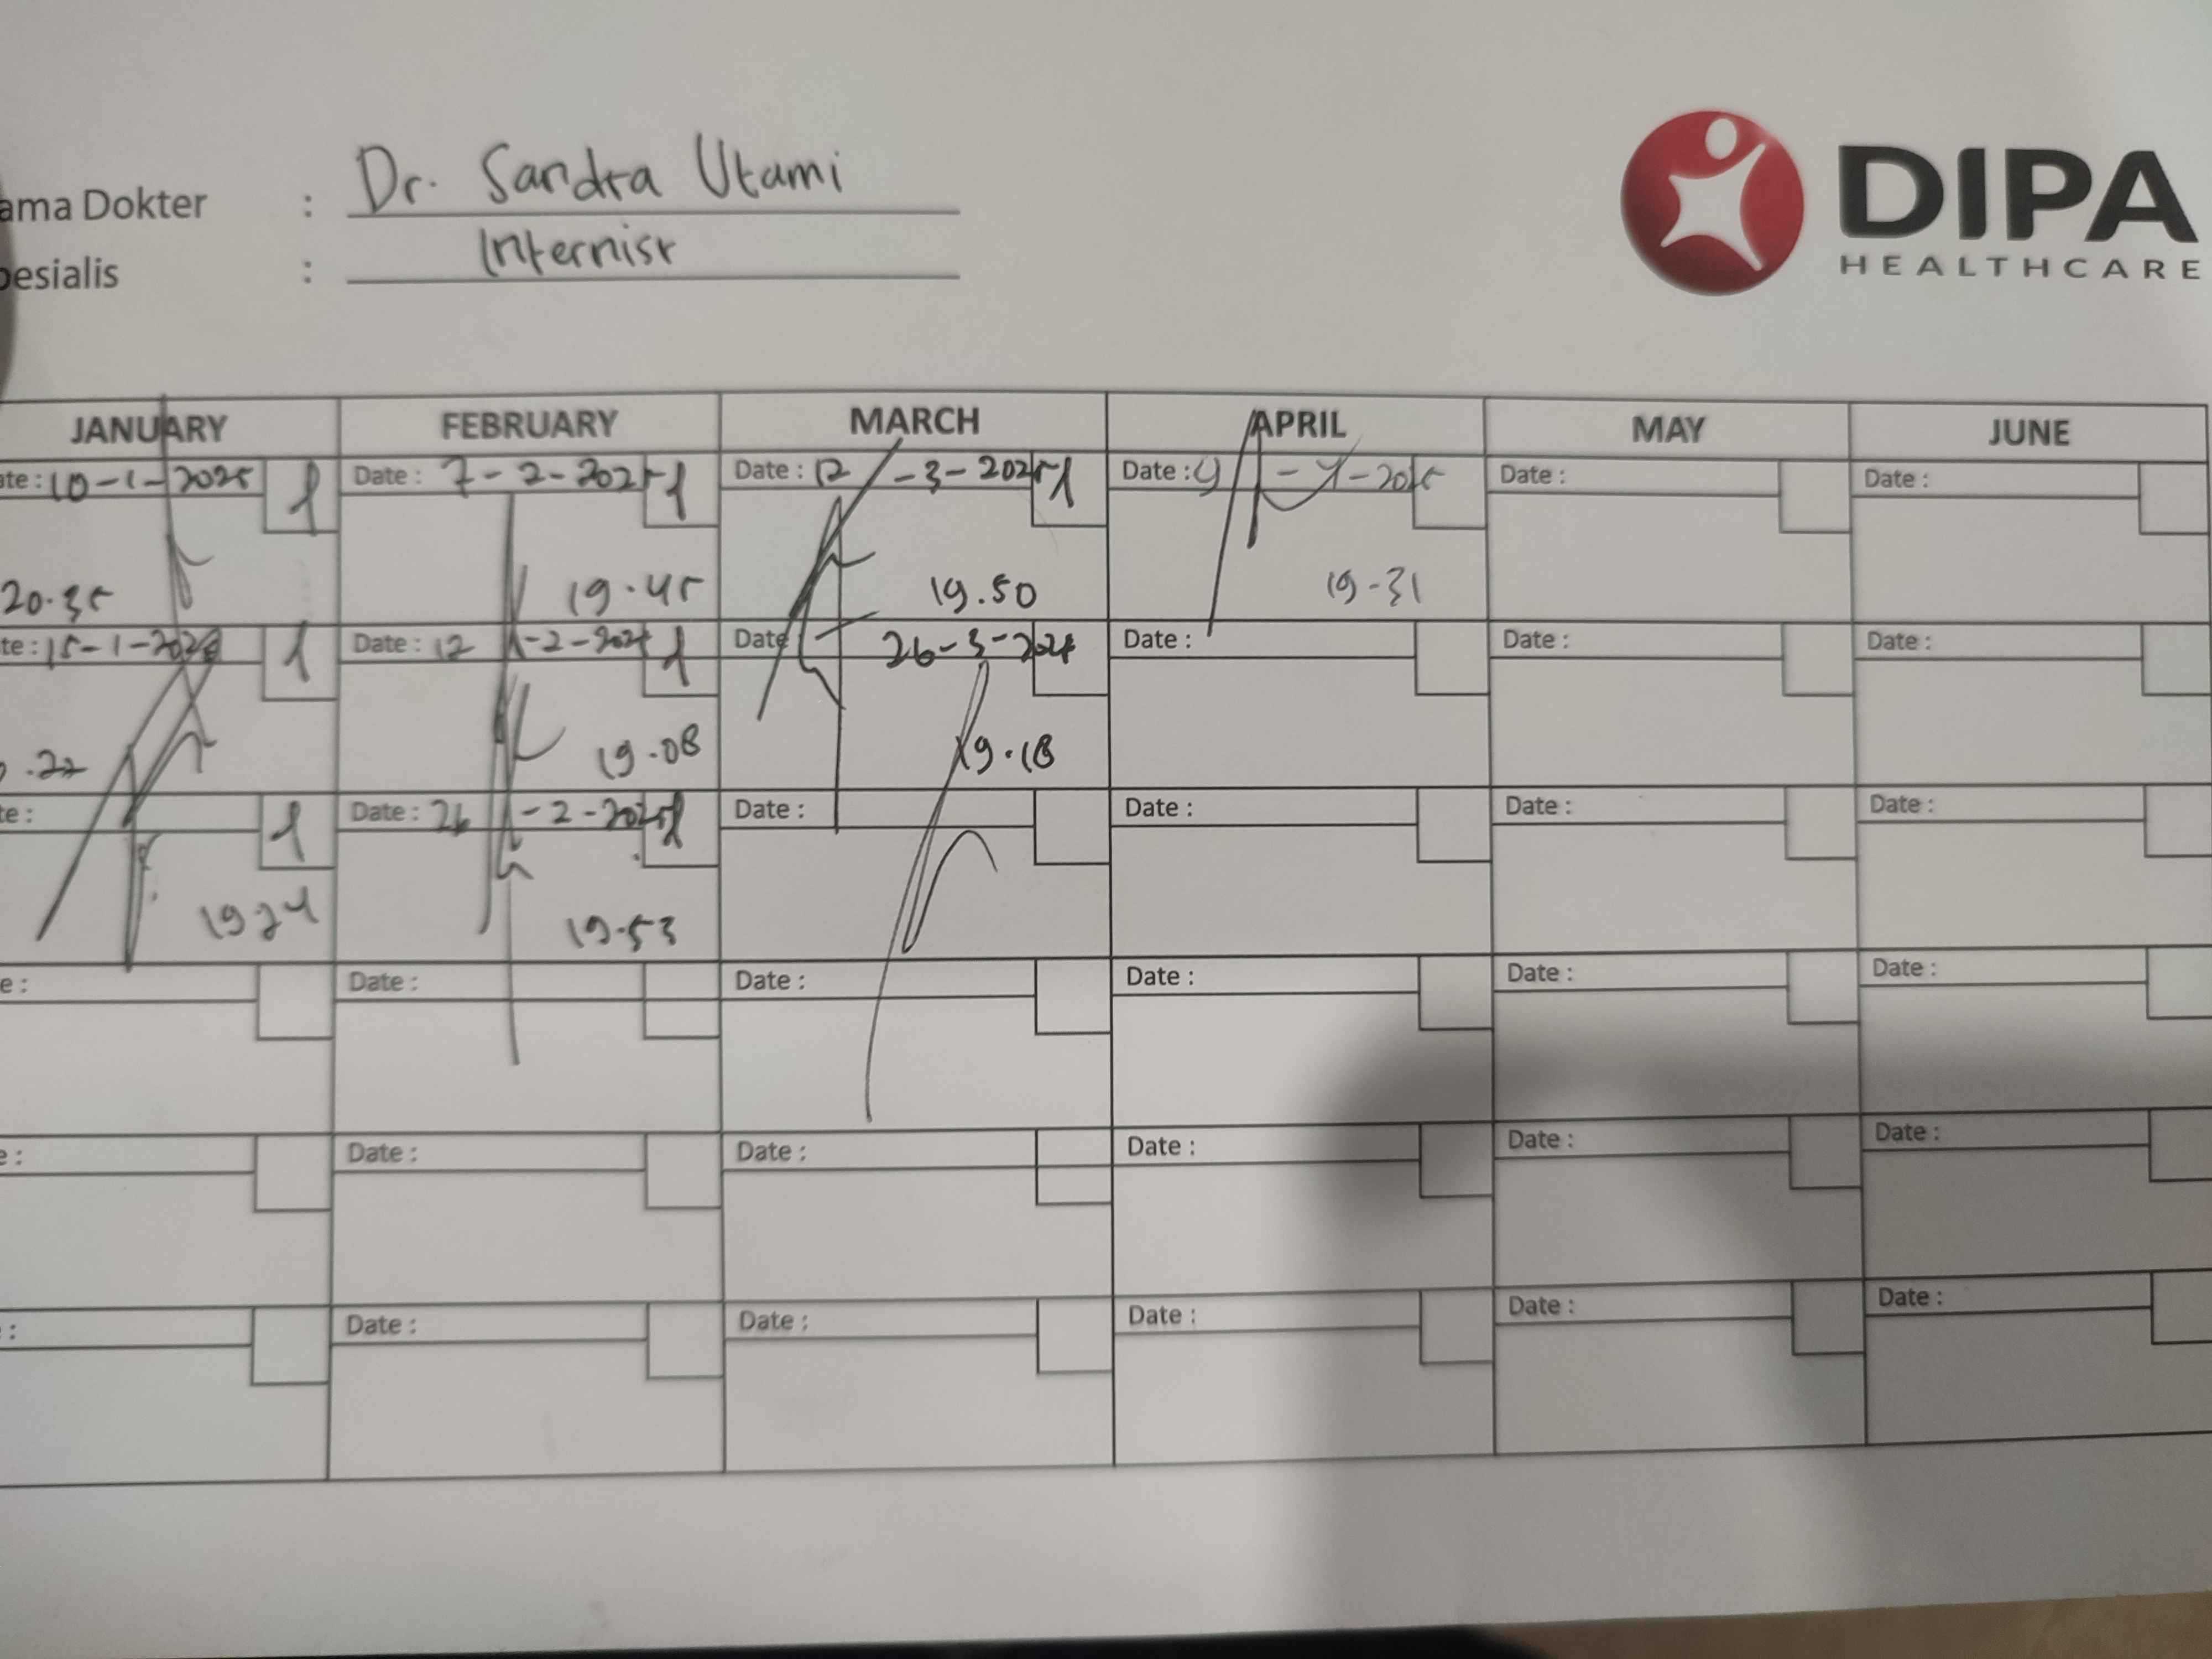 ama Dokter : Dr. Sandra Utami
pesialis : Internist
DIPA
HEALTHCARE
JANUARY FEBRUARY MARCH APRIL MAY JUNE
ate : 10-1-2025 Date : 7-2-2025 Date : 12-3-2025 Date : 9-4-2025 Date : Date :
20.35 19.45 19.50 19-31
te : 15-1-2025 Date : 12-2-2025 Date 26-3-2025 Date : Date : Date :
.22 19.08 19.18
te : Date : 26-2-2025 Date : Date : Date : Date :
19 24 19.53
e : Date : Date : Date : Date : Date :
e : Date : Date : Date : Date : Date :
: Date : Date : Date : Date : Date :